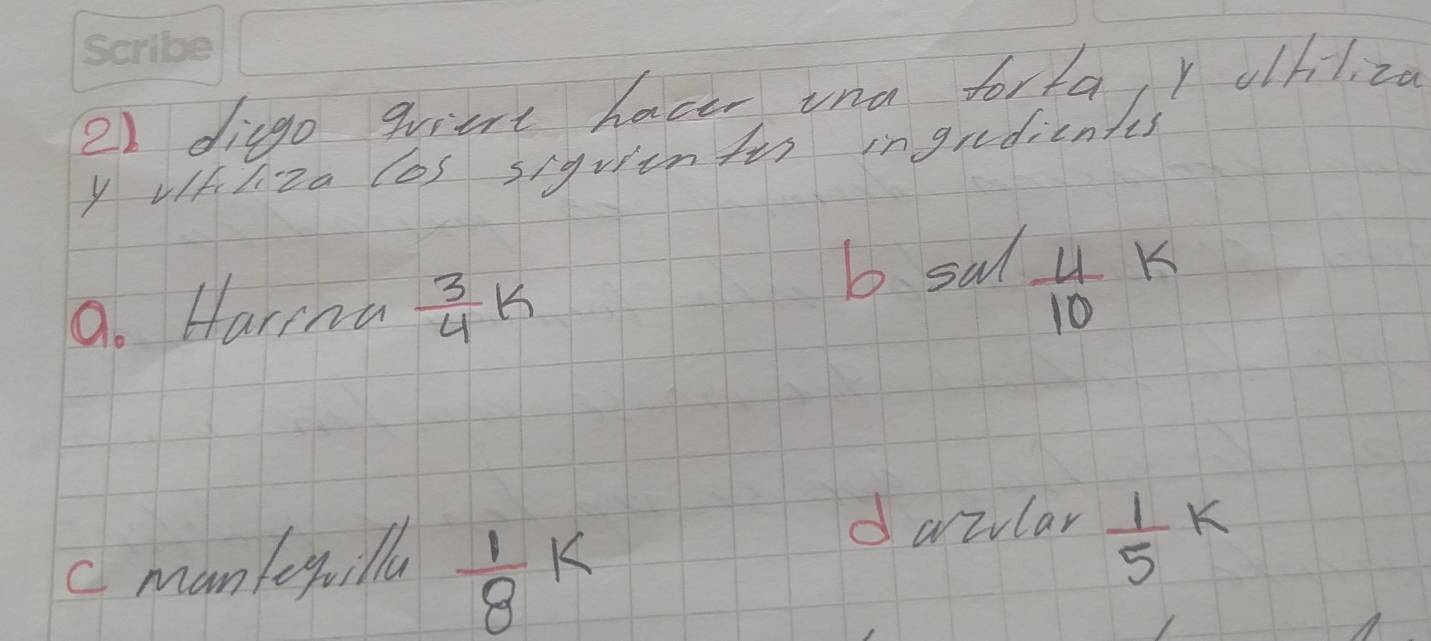 Scribe
2) diego quiere hacer una torta, y ultiliza
y ultiliza los siguientes ingredientes
a. Harina 3/4 K b sal 4/10 K
c mantequilla 1/8 K d azular 1/5 K